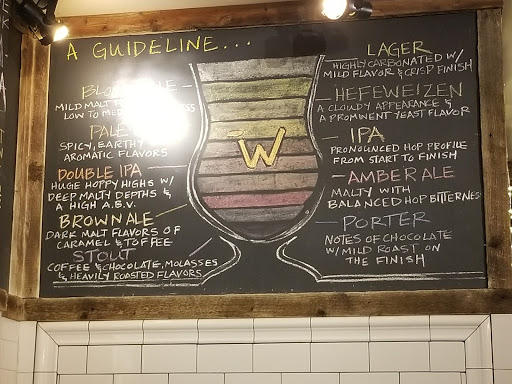 A GUIDELINE...
MILD MALT
LOW TO
SPICY, EARTHY
AROMATIC FLAVORS
DOUBLE IPA
HUGE HOPPY HIGHS W/
DEEP MALTY DEPTHS &
A HIGH A.B.V.
BROWN ALE
DARK MALT FLAVORS OF
CARAMEL & TOFFEE
STOUT
COFFEE & CHOCOLATE, MOLASSES
& HEAVILY ROASTED FLAVORS
W
LAGER
HIGHLY CARBONATED W/
MILD FLAVOR & CRISP FINISH
HEFEWEIZEN
A CLOUDY APPEARANCE &
A PROMINENT YEAST FLAVOR
IPA
PRONOUNCED HOP PROFILE
FROM START TO FINISH
AMBER ALE
MALTY WITH
BALANCED HOP BITTERNESS
PORTER
NOTES OF CHOCOLATE
W/ MILD ROAST ON
THE FINISH